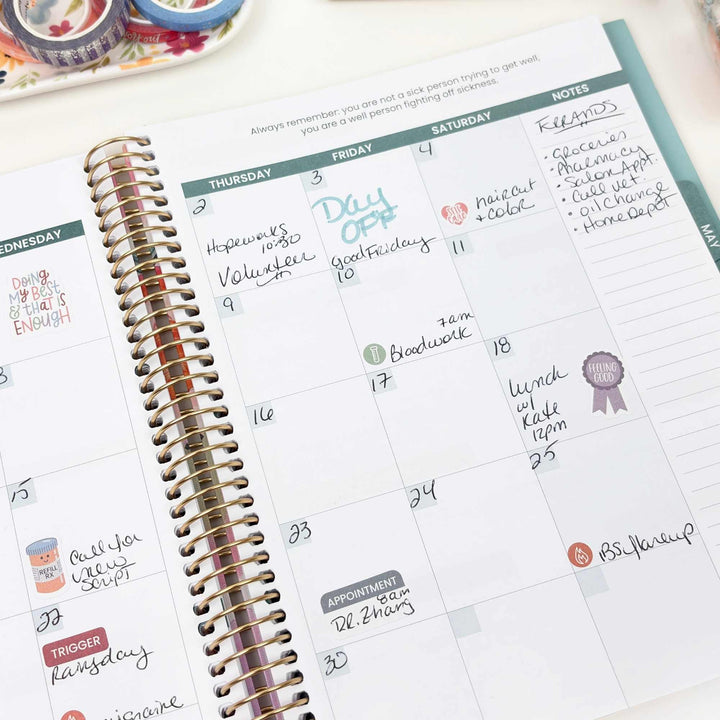 Always remember: you are not a sick person trying to get well,
you are a well person fighting off sickness.
WEDNESDAY
THURSDAY
FRIDAY
SATURDAY
NOTES
ERRANDS
• groceries
• Pharmacy
• Salon Appt.
• Call vet.
• oil change
• Home Depot
MAY
2
Hopeworks
10:30
Volunteer
3
Day
OFF
Good Friday
4
haircut
+ color
DOING
MY BEST
& that is
ENOUGH
9
10
7am
Bloodwork
11
16
17
18
Lunch
w/
Kate
12pm
FEELING
GOOD
15
REFILL
RX
Call for
new
SCRIPT
23
APPOINTMENT
8am
DR. Zhang
24
25
IBS flareup
22
TRIGGER
Rainy day
migraine
30